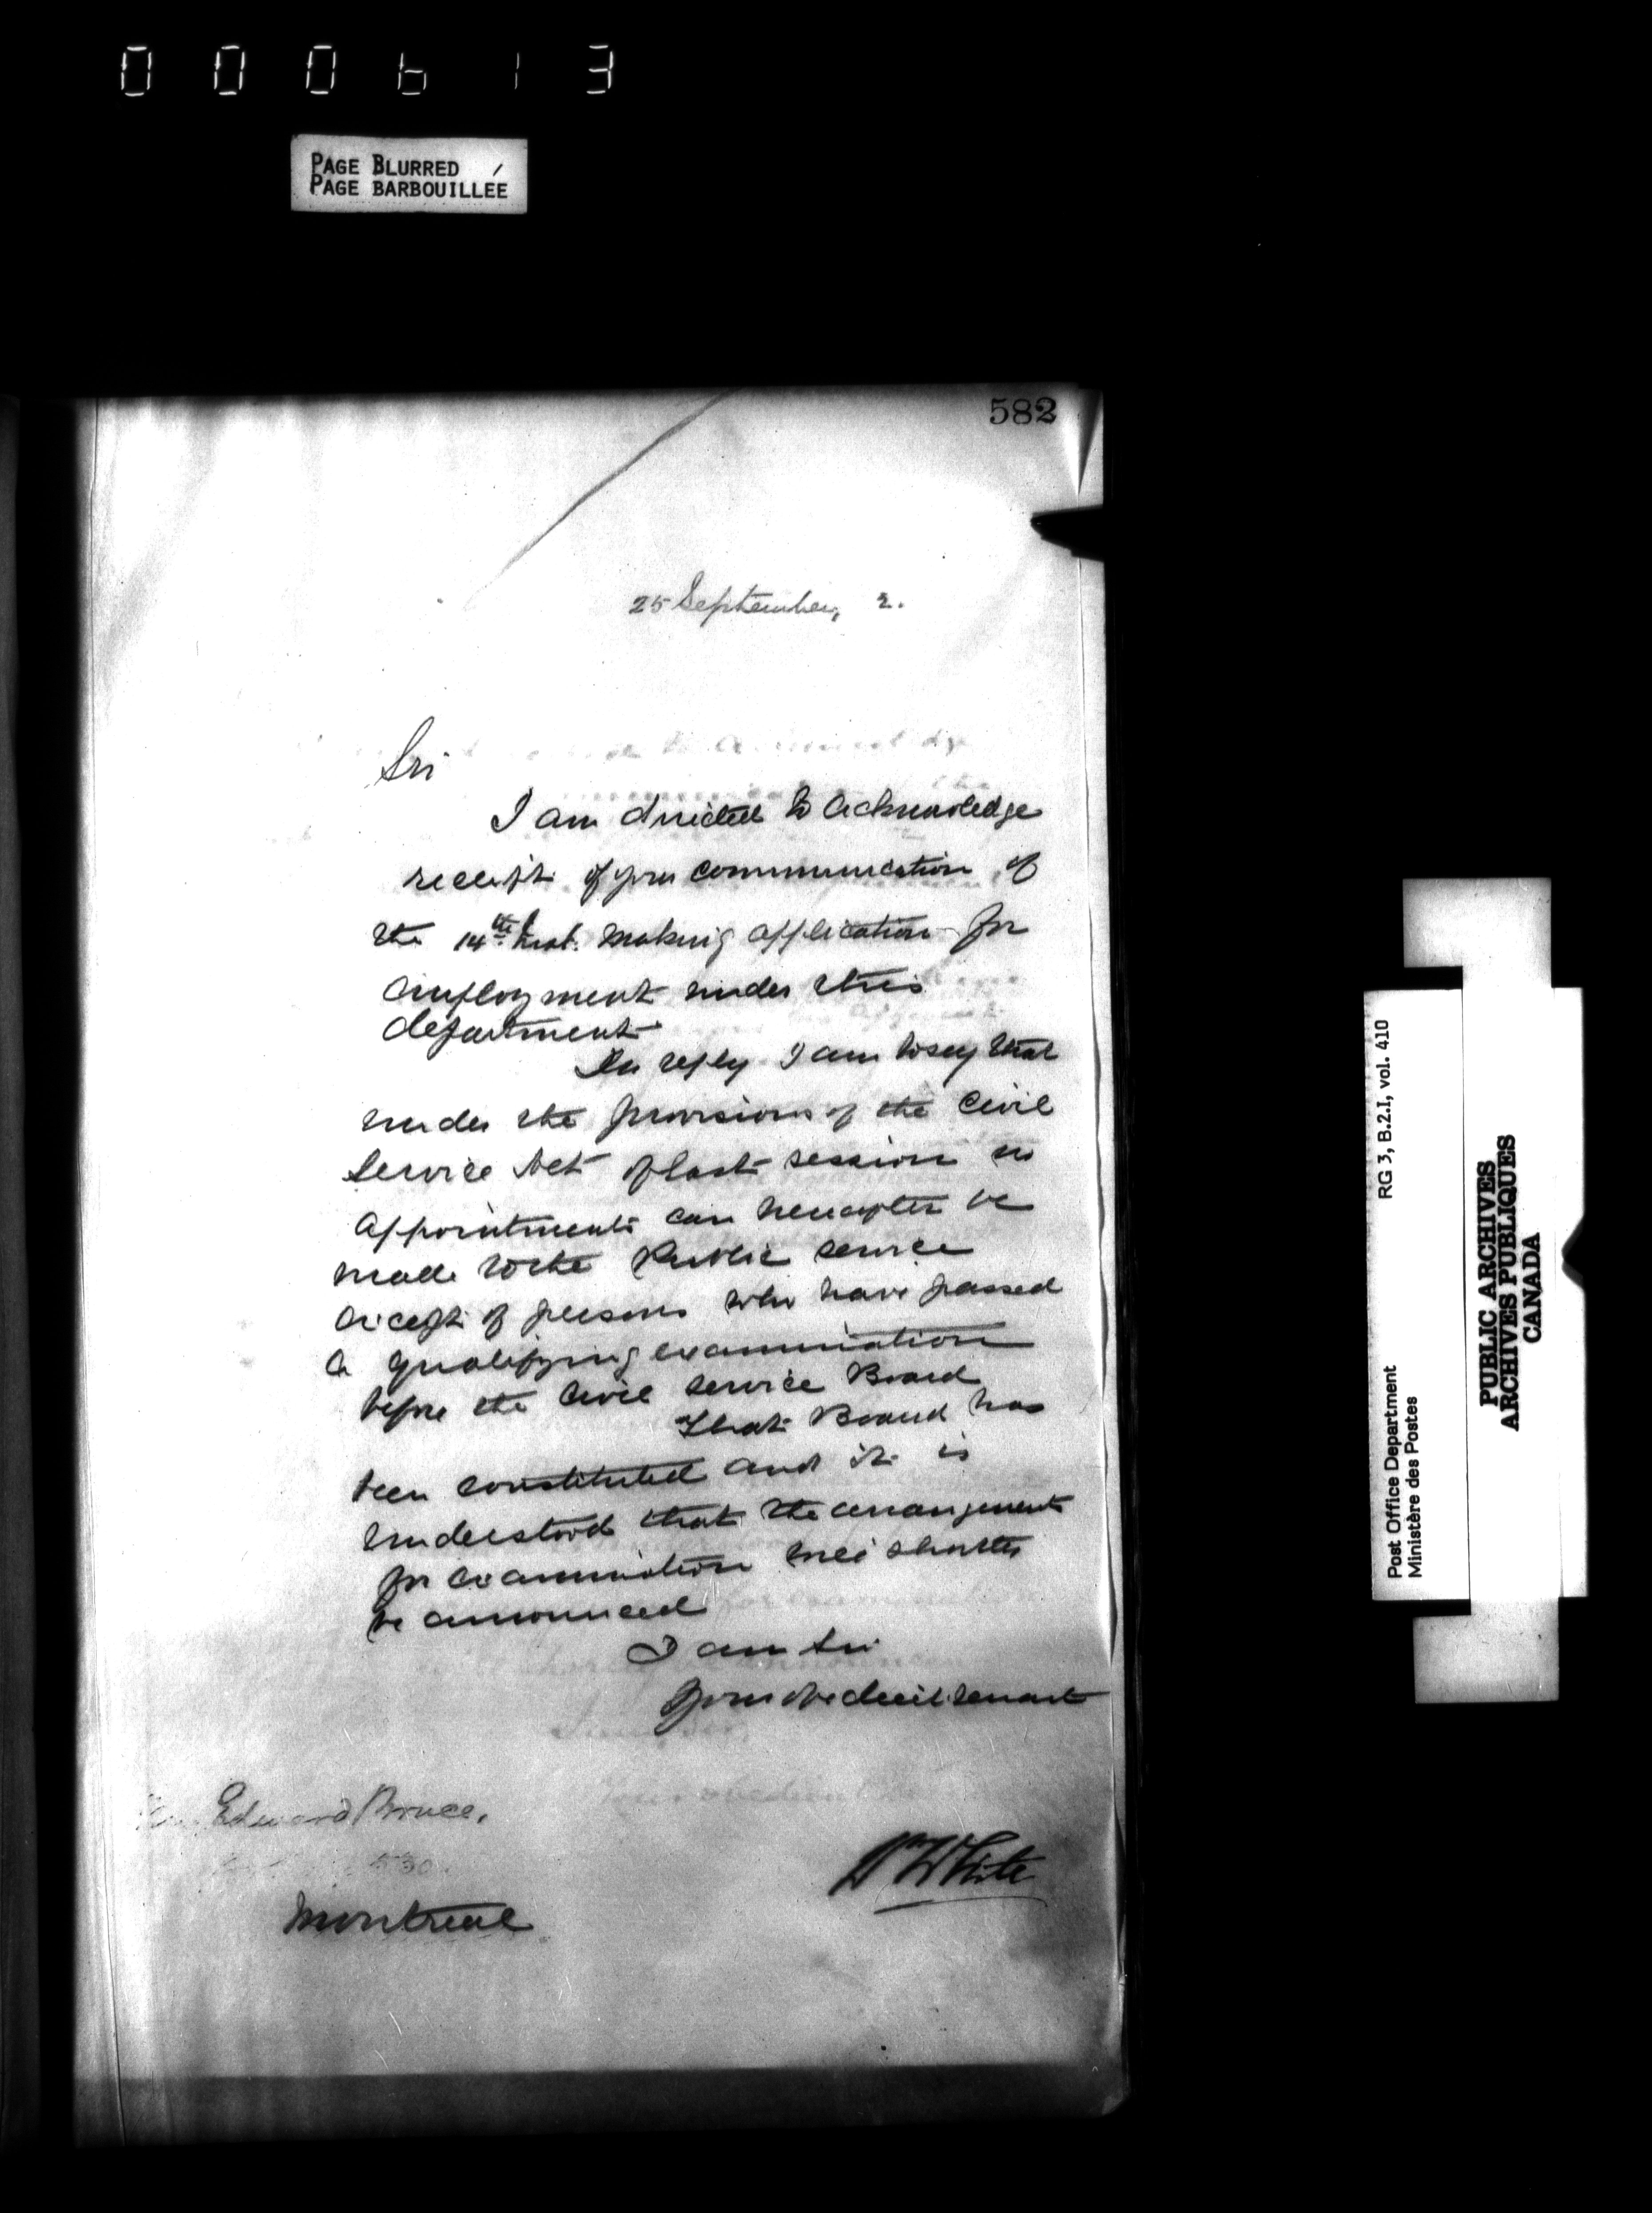 000613
PAGE BLURRED
PAGE BARBOUILLÉE
582
25 September, 2.
Sir
I am directed to acknowledge
receipt of your communication of
the 14th inst. making application for
employment under this
department
In reply I am to say that
under the provisions of the Civil
Service Act of last session no
appointments can hereafter be
made to the Public service
except of persons who have passed
a qualifying examination
before the Civil Service Board
That Board has
been constituted and it is
understood that the arrangements
for examination will shortly
be announced
I am Sir
Your obedient servant
Edward Bruce,
530
Montreal
W White
RG 3, B.2.I, vol. 410
Post Office Department
Ministère des Postes
PUBLIC ARCHIVES
ARCHIVES PUBLIQUES
CANADA